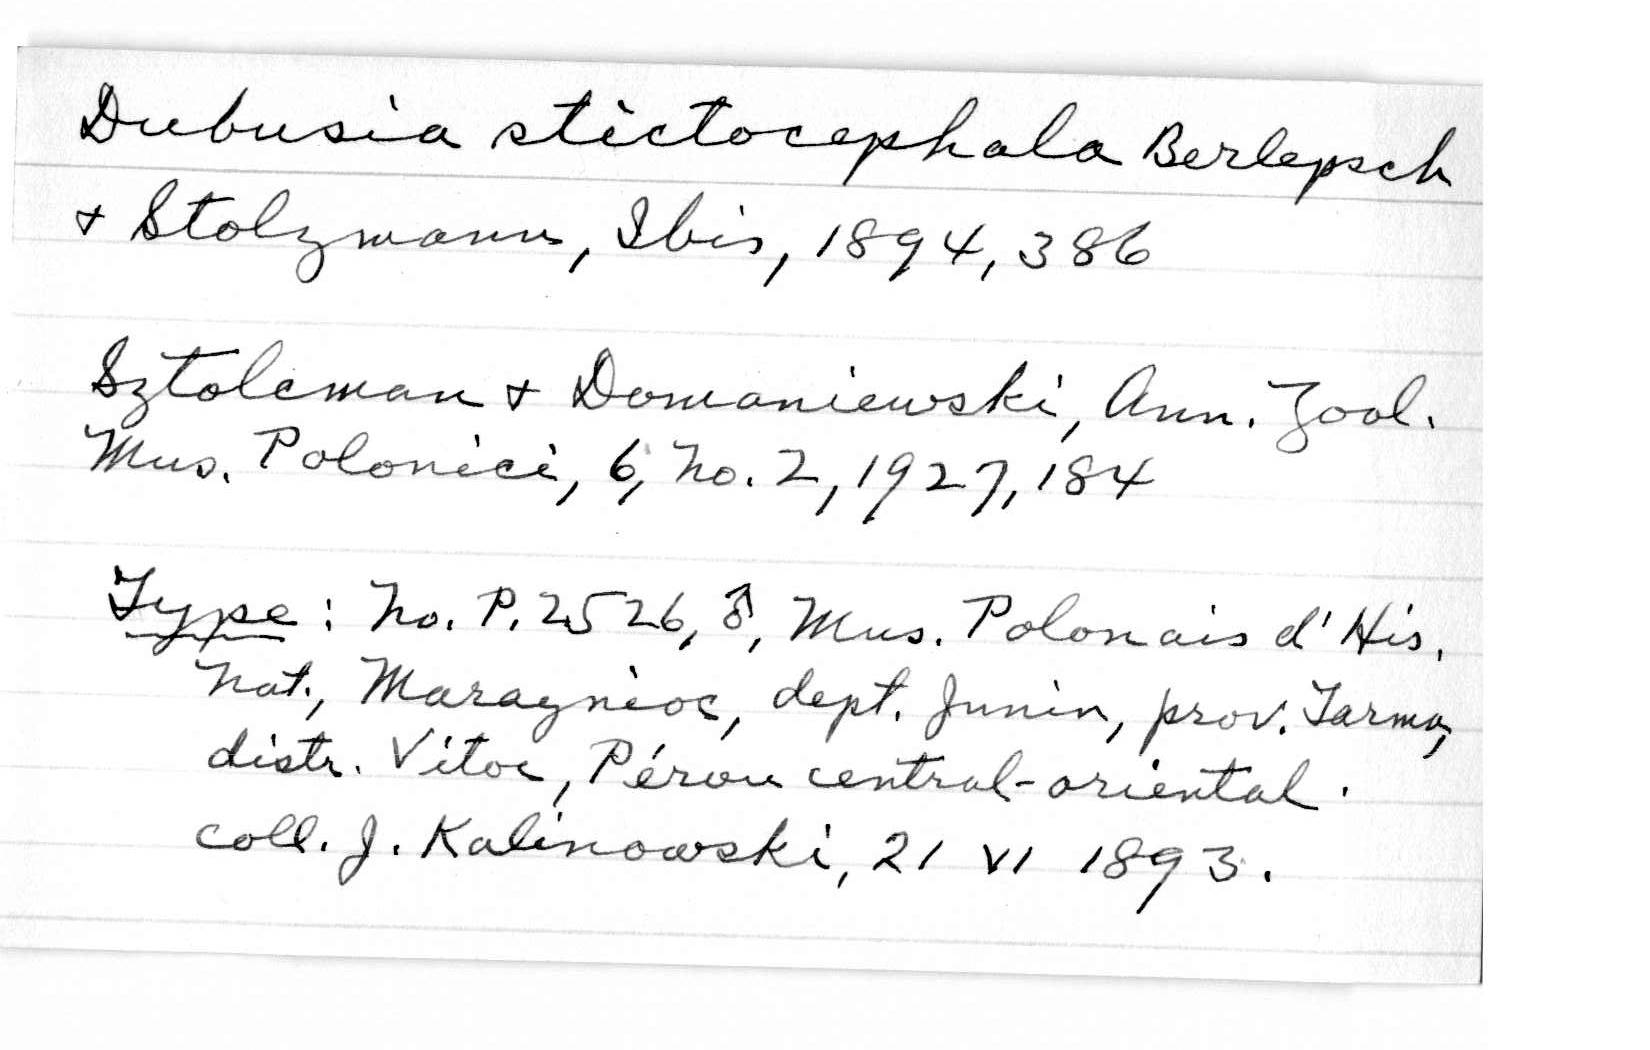 Dubusia stictocephala Berlepsch
+ Stolzmann, Ibis, 1894, 386
Sztolcman + Domaniewski, Ann. Zool.
Mus. Polonici, 6, No. 2, 1927, 184
Type: No. P. 2526, ♂, Mus. Polonais d'His.
Nat., Maraynioc, dept. Junin, prov. Tarma,
distr. Vitoc, Pérou central-oriental.
coll. J. Kalinowski, 21 VI 1893.